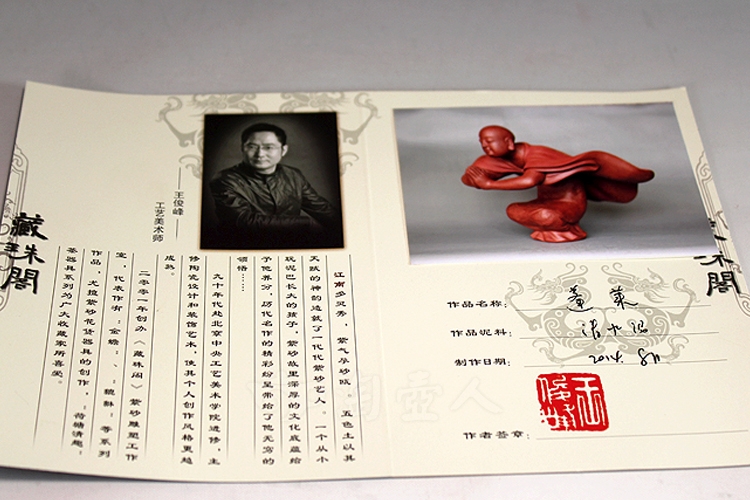 藏珠閣
王俊峰
工艺美术师
江南多灵秀，紫气孕砂瓯，五色土以其
天赋的神韵造就了一代代紫砂艺人。一个从小
玩泥巴长大的孩子，紫砂故里深厚的文化底蕴给
予他养分，历代名作的精彩纷呈带给了他无穷的
领悟……
九十年代赴北京中央工艺美术学院进修，主
修陶瓷设计和装饰艺术，使其个人创作风格更趋
成熟。
二零零一年创办《藏珠阁》紫砂雕塑工作
室，代表作有：金蟾、貔貅等系列
作品，尤擅紫砂花货器具的创作，荷塘清趣
茶器具系列为广大收藏家所喜爱。
珠閣
作品名称：蓬莱
作品泥料：
制作日期：
作者签章：
王俊峰
陶壶人